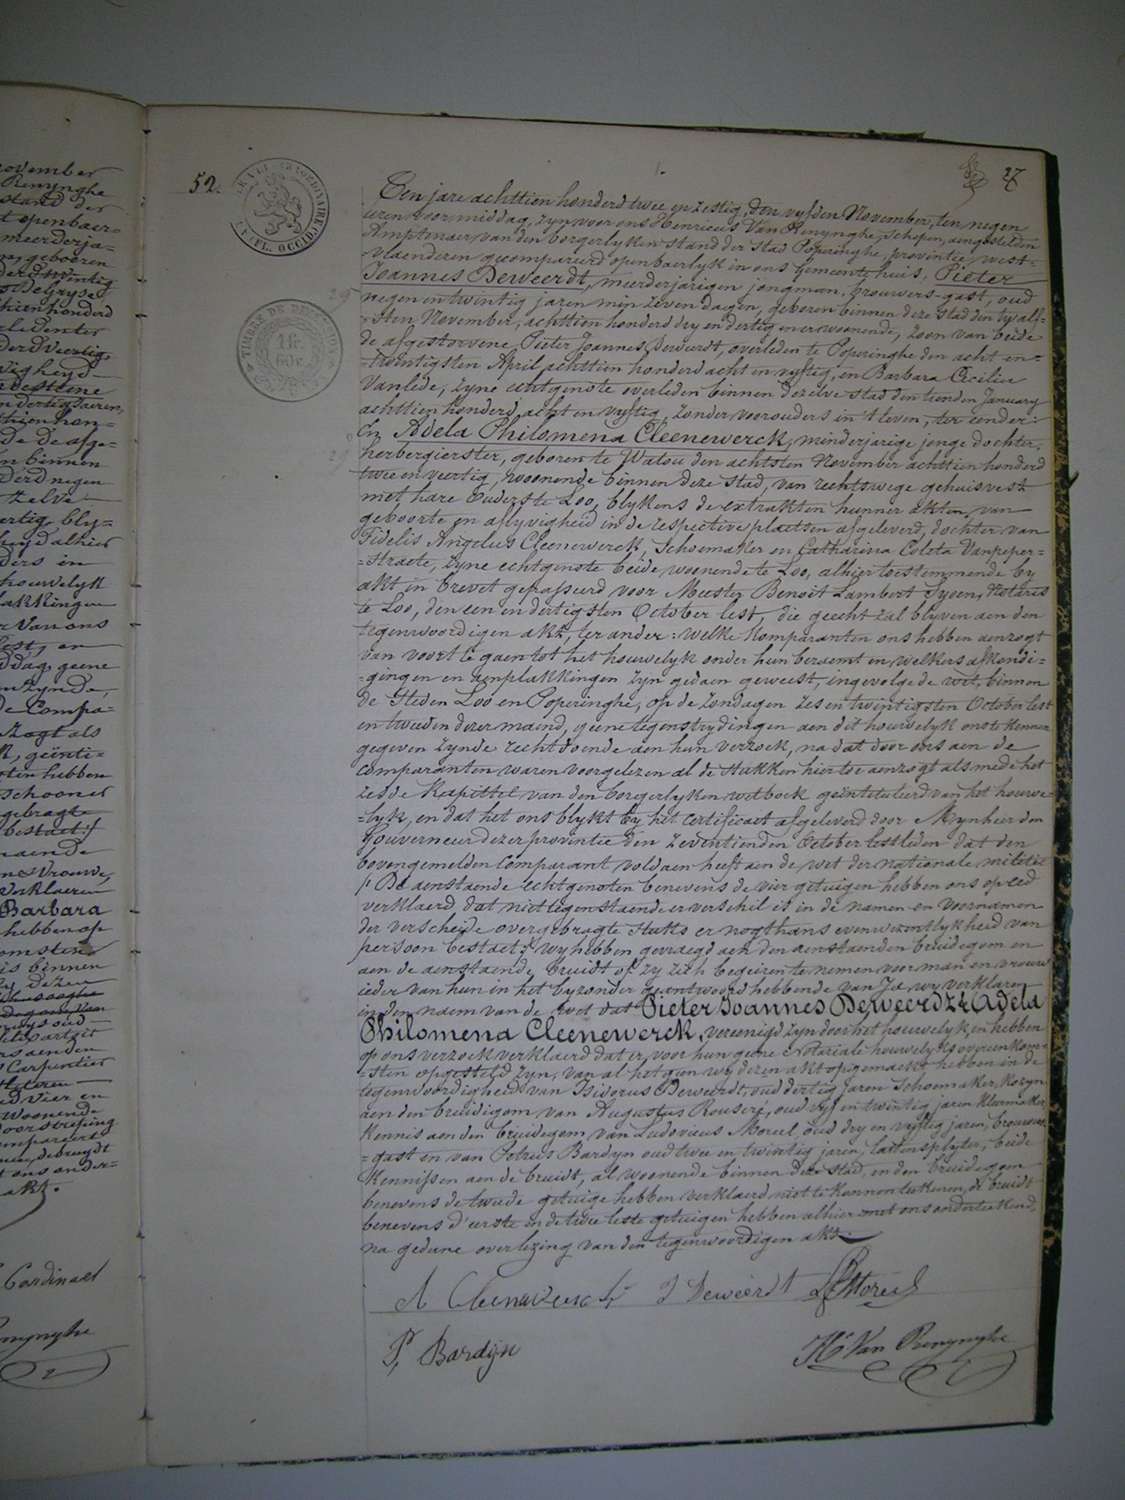 52.
27
Ten jare achttien honderd twee en zestig, den vyfden November, ten negen
uren voormiddag, zyn voor ons Henricus Van Renynghe, schepen, aengestelden
Amptenaer van den borgerlyken stand der stad Poperinghe, provintie west-
vlaenderen gecompareerd openbaerlyk in ons Gemeentehuis, Pieter
Joannes Deweerdt, meerderjarigen jongman, brouwers-gast, oud
negen en twintig jaren min zeven dagen, geboren binnen deze stad den twaelf-
sten November, achttien honderd dry en dertig en er woonende, zoon van beide
de afgestorvene, Pieter Joannes Deweerdt, overleden te Poperinghe den acht en-
-twintigsten April achttien honderd acht en vyftig, en Barbara Cecilia
Vanlede, zyne echtgenote overleden binnen dezelve stad den tienden January
achttien honderd acht en vyftig, zonder voorouders in 't leven, ter eender:
En Adela Philomena Cleenewerck, minderjarige jonge dochter,
herbergierster, geboren te Watou den achtsten November achttien honderd
twee en veertig, woonende binnen deze stad, van rechtswege gehuisvest
met hare Ouders te Loo, blykens de extrakten hunner akten van
geboorte en aflyvigheid in de respective plaetsen afgeleverd, dochter van
Fidelis Angelus Cleenewerck, Schoemaker en Catharina Coleta Vanpeper-
-straete, zyne echtgenote beide woonende te Loo, alhier toestemmende by
akt in brevet gepasseerd voor Meester Benoit Lambert Sysen, Notaris
te Loo, den een en dertigsten October lest, die geecht zal blyven aen den
tegenwoordigen akt, ter ander: welke komparanten ons hebben aenzogt
van voort te gaen tot het houwelyk onder hun beraemt en welkers afkondi-
-gingen en aenplakkingen zyn gedaen geweest, ingevolge de wet, binnen
de steden Loo en Poperinghe, op de zondagen zes en twintigsten October lest
en tweeden dezer maend, geene tegenstrydingen aen dit houwelyk ons te kennen
gegeven zynde rechtdoende aen hun verzoek, na dat door ons aen de
comparanten waren voorgelezen al de stukken hier toe aenzogt als mede het
zesde kapittel van den borgerlyken wetboek geïntituleerd van het houwe-
-lyk, en dat het ons blykt by het certificaet afgeleverd door Mynheer den
Gouverneur dezer provintie den zeventienden October lestleden dat den
bovengemelden Comparant voldaen heeft aen de wet der nationale militie
/: De aenstaende echtgenoten benevens de vier getuigen hebben ons op eed
verklaerd dat niettegenstaende er verschil is in de namen en voornamen
der verscheide overgebragte stukken er nogthans evenwezentlykheid van
persoon bestaet:/ wy hebben gevraegd aen den aenstaenden bruidegom en
aen de aenstaende bruidt of zy zich begeiren te nemen voor man en vrouw
ieder van hun in het byzonder geantwoord hebbende van Ja, wy verklaren
in den naem van de wet dat Pieter Joannes Deweerdt & Adela
Philomena Cleenewerck, vereenigd zyn door het houwelyk en hebben
op ons verzoek verklaerd dat er voor hun geene Notariale houwelyksovereenkom-
-sten opgesteld zyn, van al het geen wy dezen akt opgemaekt hebben in de
tegenwoordigheid van Isidorus Deweerdt, oud dertig jaren Schoemaker, kozyn
aen den bruidigom van Augustus Rouseré, oud vyf en twintig jaren kleermaker,
kennis aen den bruidegom, van Ludovicus Moreel, oud dry en vyftig jaren, brouwers-
-gast en van Petrus Bardyn oud twee en twintig jaren, lattensplyter, beide
kennissen aen de bruidt, al woonende binnen deze stad, en den bruidegom
benevens de tweede getuige hebben verklaerd niet te kunnen teekenen, de bruidt
benevens d'eerste en de twee leste getuigen hebben alhier met ons onderteekend,
na gedane overlezing van den tegenwoordigen akt.
A Cleenewerck J Deweerdt L Moreel
P. Bardyn
Hy Van Renynghe